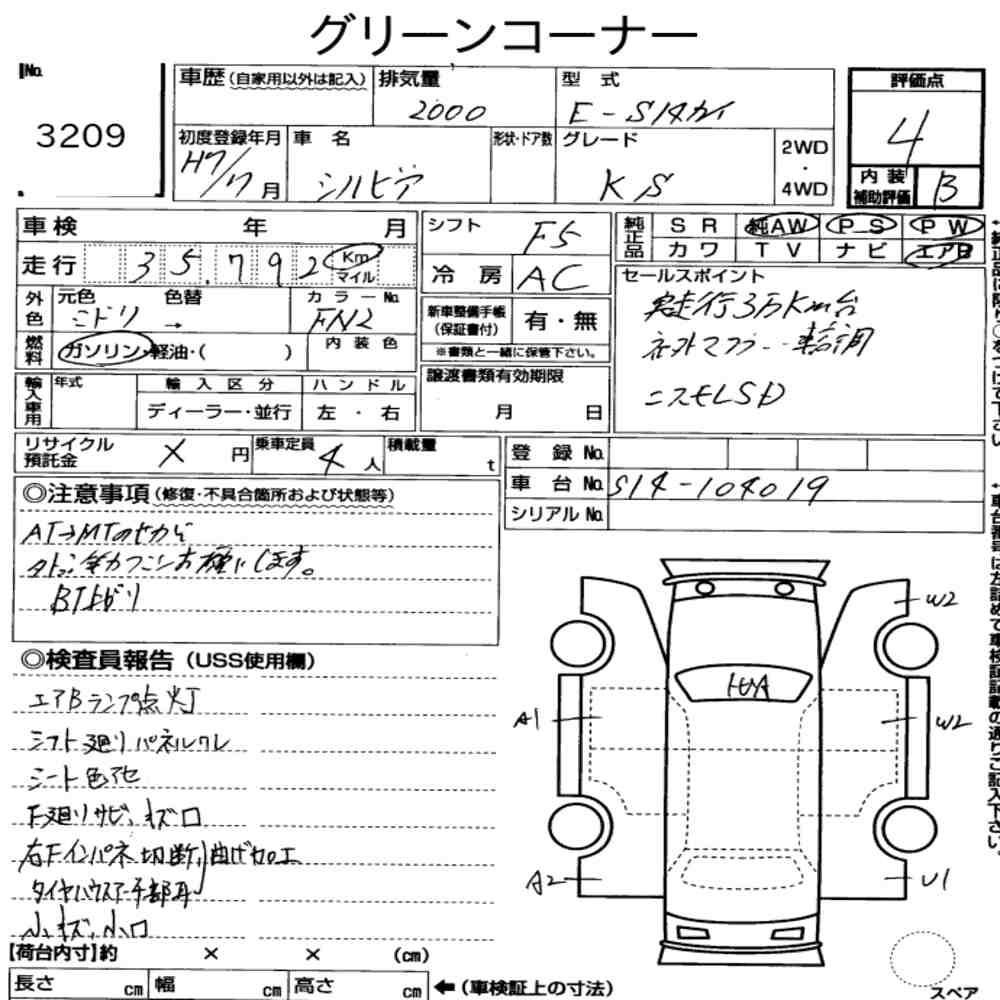 グリーンコーナー
No.
3209
車歴(自家用以外は記入)
排気量
2000
型式
E-S14カイ
評価点
4
内装補助評価
B
初度登録年月
H7/7月
車名
シルビア
形状・ドア数
グレード
KS
2WD
・
4WD
車検 年 月
走行 35,792 Km マイル
シフト
F5
冷房
AC
純正品
SR 純AW PS PW
カワ TV ナビ エアB
外色
元色 色替
ミドリ →
カラーNo.
FN2
燃料
ガソリン・軽油・( )
内装色
新車整備手帳(保証書付)
有・無
※書類と一緒に保管下さい。
セールスポイント
実走行3万Km台
ニスモLSD
輸入車用
年式
輸入区分
ディーラー・並行
ハンドル
左・右
譲渡書類有効期限
月 日
リサイクル預託金
× 円
乗車定員
4人
積載量
t
登録No.
車台No. S14-104019
シリアルNo.
◎注意事項(修復・不具合箇所および状態等)
AT→MTのせかえ
BT上がり
◎検査員報告(USS使用欄)
エアBランプ点灯
シフト廻りパネルワレ
シート色アセ
F廻りサビ、キズ凹
右Fインパネ切断、曲げ加工
タイヤハウスアーチ部耳
小キズ、小凹
W2
A1
W2
A2
U1
スペア
【荷台内寸】約 × × (cm)
長さ cm 幅 cm 高さ cm
←(車検証上の寸法)
↑車台番号は左詰めで車検証記載の通りご記入下さい。